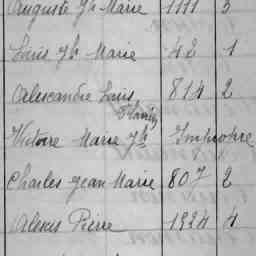 Auguste Jh Marie 1111 3
Louis Jh Marie 42 1
Alexandre Louis 814 2
Victoire Marie Jh Impropre
Charles Jean Marie 807 2
Alexis Pierre 1924 4